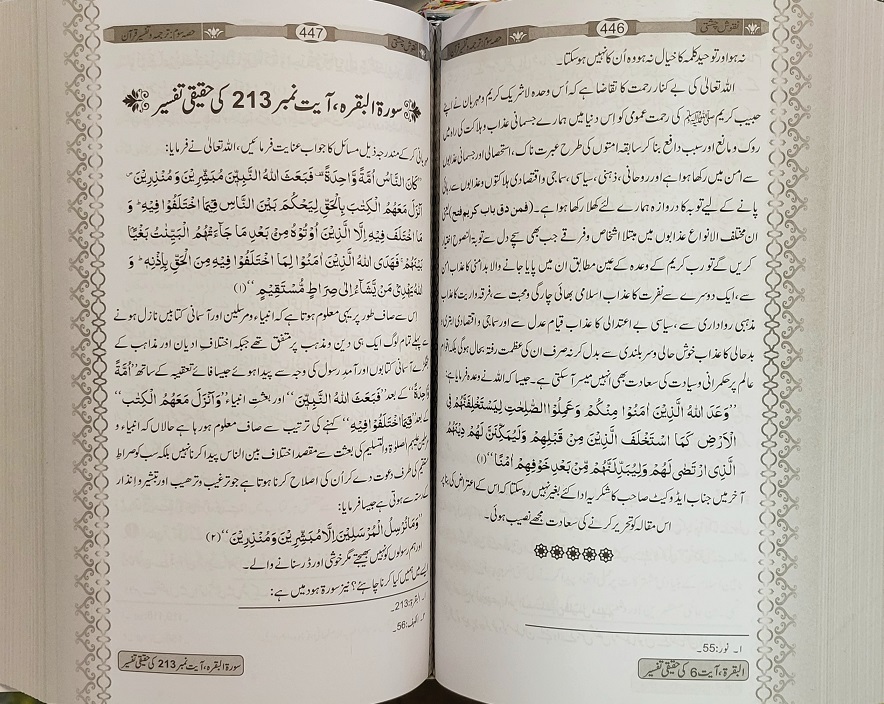 نقوش چشتی
446
حصہ سوم: ترجمہ و تفسیر قرآن
نہ ہو اور توحیدِ کلمہ کا خیال نہ ہو وہ اُن کا نہیں ہو سکتا۔
اللہ تعالیٰ کی بے کنار رحمت کا تقاضا ہے کہ اُس وحدہ لاشریک کریم و مہربان نے اپنے
حبیب کریم ﷺ کی رحمتِ عمومی کو اس دنیا میں ہمارے جسمانی عذاب و ہلاکت کی راہ میں
روک و مانع اور سبب دافع بنا کر سابقہ امتوں کی طرح عبرت ناک، استحصالی اور جسمانی عذابوں
سے امن میں رکھا ہوا ہے اور روحانی، ذہنی، سیاسی، سماجی و اقتصادی ہلاکتوں و عذابوں سے رہائی
پانے کے لیے توبہ کا دروازہ ہمارے لئے کھلا رکھا ہوا ہے۔ (فمن دق باب کریم فتح)
ان مختلف الانواع عذابوں میں مبتلا اشخاص و فرقے جب بھی سچے دل سے توبۃ النصوح اختیار
کریں گے تو رب کریم کے وعدہ کے عین مطابق ان میں پایا جانے والا بدامنی کا عذاب امن
سے، ایک دوسرے سے نفرت کا عذاب اسلامی بھائی چارگی و محبت سے، فرقہ واریت کا عذاب
مذہبی رواداری سے، سیاسی بے اعتدالی کا عذاب قیام عدل سے اور سماجی و اقتصادی ابتری و
بدحالی کا عذاب خوش حالی و سر بلندی سے بدل کر نہ صرف ان کی عظمت رفتہ بحال ہو گی بلکہ اقوام
عالم پر حکمرانی و سیادت کی سعادت بھی انہیں میسر آ سکتی ہے۔ جیسا کہ اللہ نے وعدہ فرمایا ہے:
”وَعَدَ اللهُ الَّذِينَ اٰمَنُوا مِنْكُمْ وَعَمِلُوا الصّٰلِحٰتِ لَيَسْتَخْلِفَنَّهُمْ فِي
الْاَرْضِ كَمَا اسْتَخْلَفَ الَّذِيْنَ مِنْ قَبْلِهِمْ وَلَيُمَكِّنَنَّ لَهُمْ دِيْنَهُمُ
الَّذِى ارْتَضٰى لَهُمْ وَلَيُبَدِّلَنَّهُمْ مِّنْ بَعْدِ خَوْفِهِمْ اَمْنًا“ (۱)
آخر میں جناب ایڈووکیٹ صاحب کا شکریہ ادا کئے بغیر نہیں رہ سکتا کہ اس کے اعتراض کی بنا پر
اس مقالہ کو تحریر کرنے کی سعادت مجھے نصیب ہوئی۔
۱۔ نور:55۔
البقرۃ، آیت 6 کی حقیقی تفسیر
نقوش چشتی
447
حصہ سوم: ترجمہ و تفسیر قرآن
سورۃ البقرہ، آیت نمبر 213 کی حقیقی تفسیر
مہربانی کر کے مندرجہ ذیل مسائل کا جواب عنایت فرمائیں، اللہ تعالیٰ نے فرمایا:
”كَانَ النَّاسُ اُمَّةً وَّاحِدَةً فَبَعَثَ اللهُ النَّبِيّٖنَ مُبَشِّرِيْنَ وَمُنْذِرِيْنَ
وَاَنْزَلَ مَعَهُمُ الْكِتٰبَ بِالْحَقِّ لِيَحْكُمَ بَيْنَ النَّاسِ فِيْمَا اخْتَلَفُوْا فِيْهِ وَ
مَا اخْتَلَفَ فِيْهِ اِلَّا الَّذِيْنَ اُوْتُوْهُ مِنْ بَعْدِ مَا جَآءَتْهُمُ الْبَيِّنٰتُ بَغْيًا
بَيْنَهُمْ فَهَدَى اللهُ الَّذِيْنَ اٰمَنُوْا لِمَا اخْتَلَفُوْا فِيْهِ مِنَ الْحَقِّ بِاِذْنِهٖ وَ
اللهُ يَهْدِيْ مَنْ يَّشَآءُ اِلٰى صِرَاطٍ مُّسْتَقِيْمٍ“ (۱)
اس سے صاف طور پر یہی معلوم ہوتا ہے کہ انبیاء و مرسلین اور آسمانی کتابیں نازل ہونے
سے پہلے تمام لوگ ایک ہی دین و مذہب پر متفق تھے جبکہ اختلاف ادیان اور مذاہب کے
جھگڑے آسمانی کتابوں اور آمدِ رسول کی وجہ سے پیدا ہوئے جیسا فائے تعقیبیہ کے ساتھ ”اُمَّةً
وَّاحِدَةً“ کے بعد ”فَبَعَثَ اللهُ النَّبِيّٖنَ“ اور بعثتِ انبیاء ”وَاَنْزَلَ مَعَهُمُ الْكِتٰبَ“
کے بعد ”فِيْمَا اخْتَلَفُوْا فِيْهِ“ کہنے کی ترتیب سے صاف معلوم ہو رہا ہے حالاں کہ انبیاء و
مرسلین علیہم الصلوٰۃ والتسلیم کی بعثت سے مقصد اختلاف بین الناس پیدا کرنا نہیں بلکہ سب کو صراط
مستقیم کی طرف دعوت دے کر اُن کی اصلاح کرنا ہوتا ہے جو ترغیب و ترھیب اور تبشیر و اِنذار
سے ہوتی ہے جیسا فرمایا:
”وَمَا نُرْسِلُ الْمُرْسَلِيْنَ اِلَّا مُبَشِّرِيْنَ وَمُنْذِرِيْنَ“ (۲)
اور ہم رسولوں کو نہیں بھیجتے مگر خوشی اور ڈر سنانے والے۔
ایسے میں ہمیں کیا کرنا چاہئے؟ نیز سورۃ ہود میں ہے:
۱۔ البقرۃ:213۔
۲۔ الکہف:56۔
سورۃ البقرہ، آیت نمبر 213 کی حقیقی تفسیر